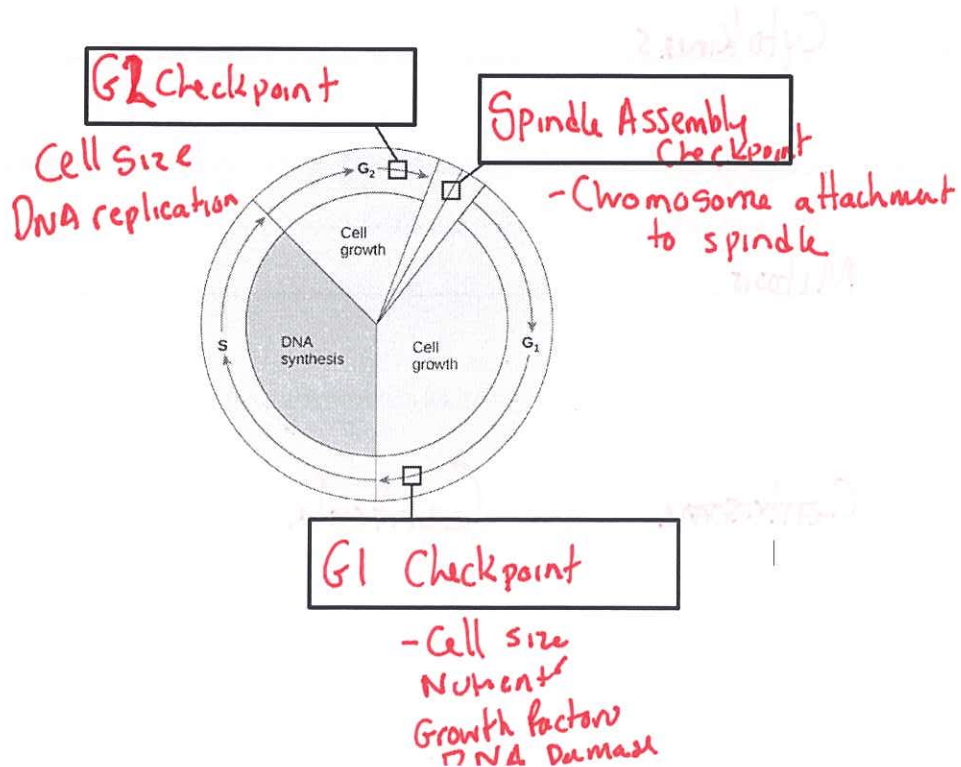 G2 Checkpoint
Cell size
DNA replication
Spindle Assembly
Checkpoint
- Chromosome attachment
to spindle
G₂
Cell
growth
S
DNA
synthesis
Cell
growth
G₁
G1 Checkpoint
- Cell size
Nutrients
Growth factors
DNA Damage